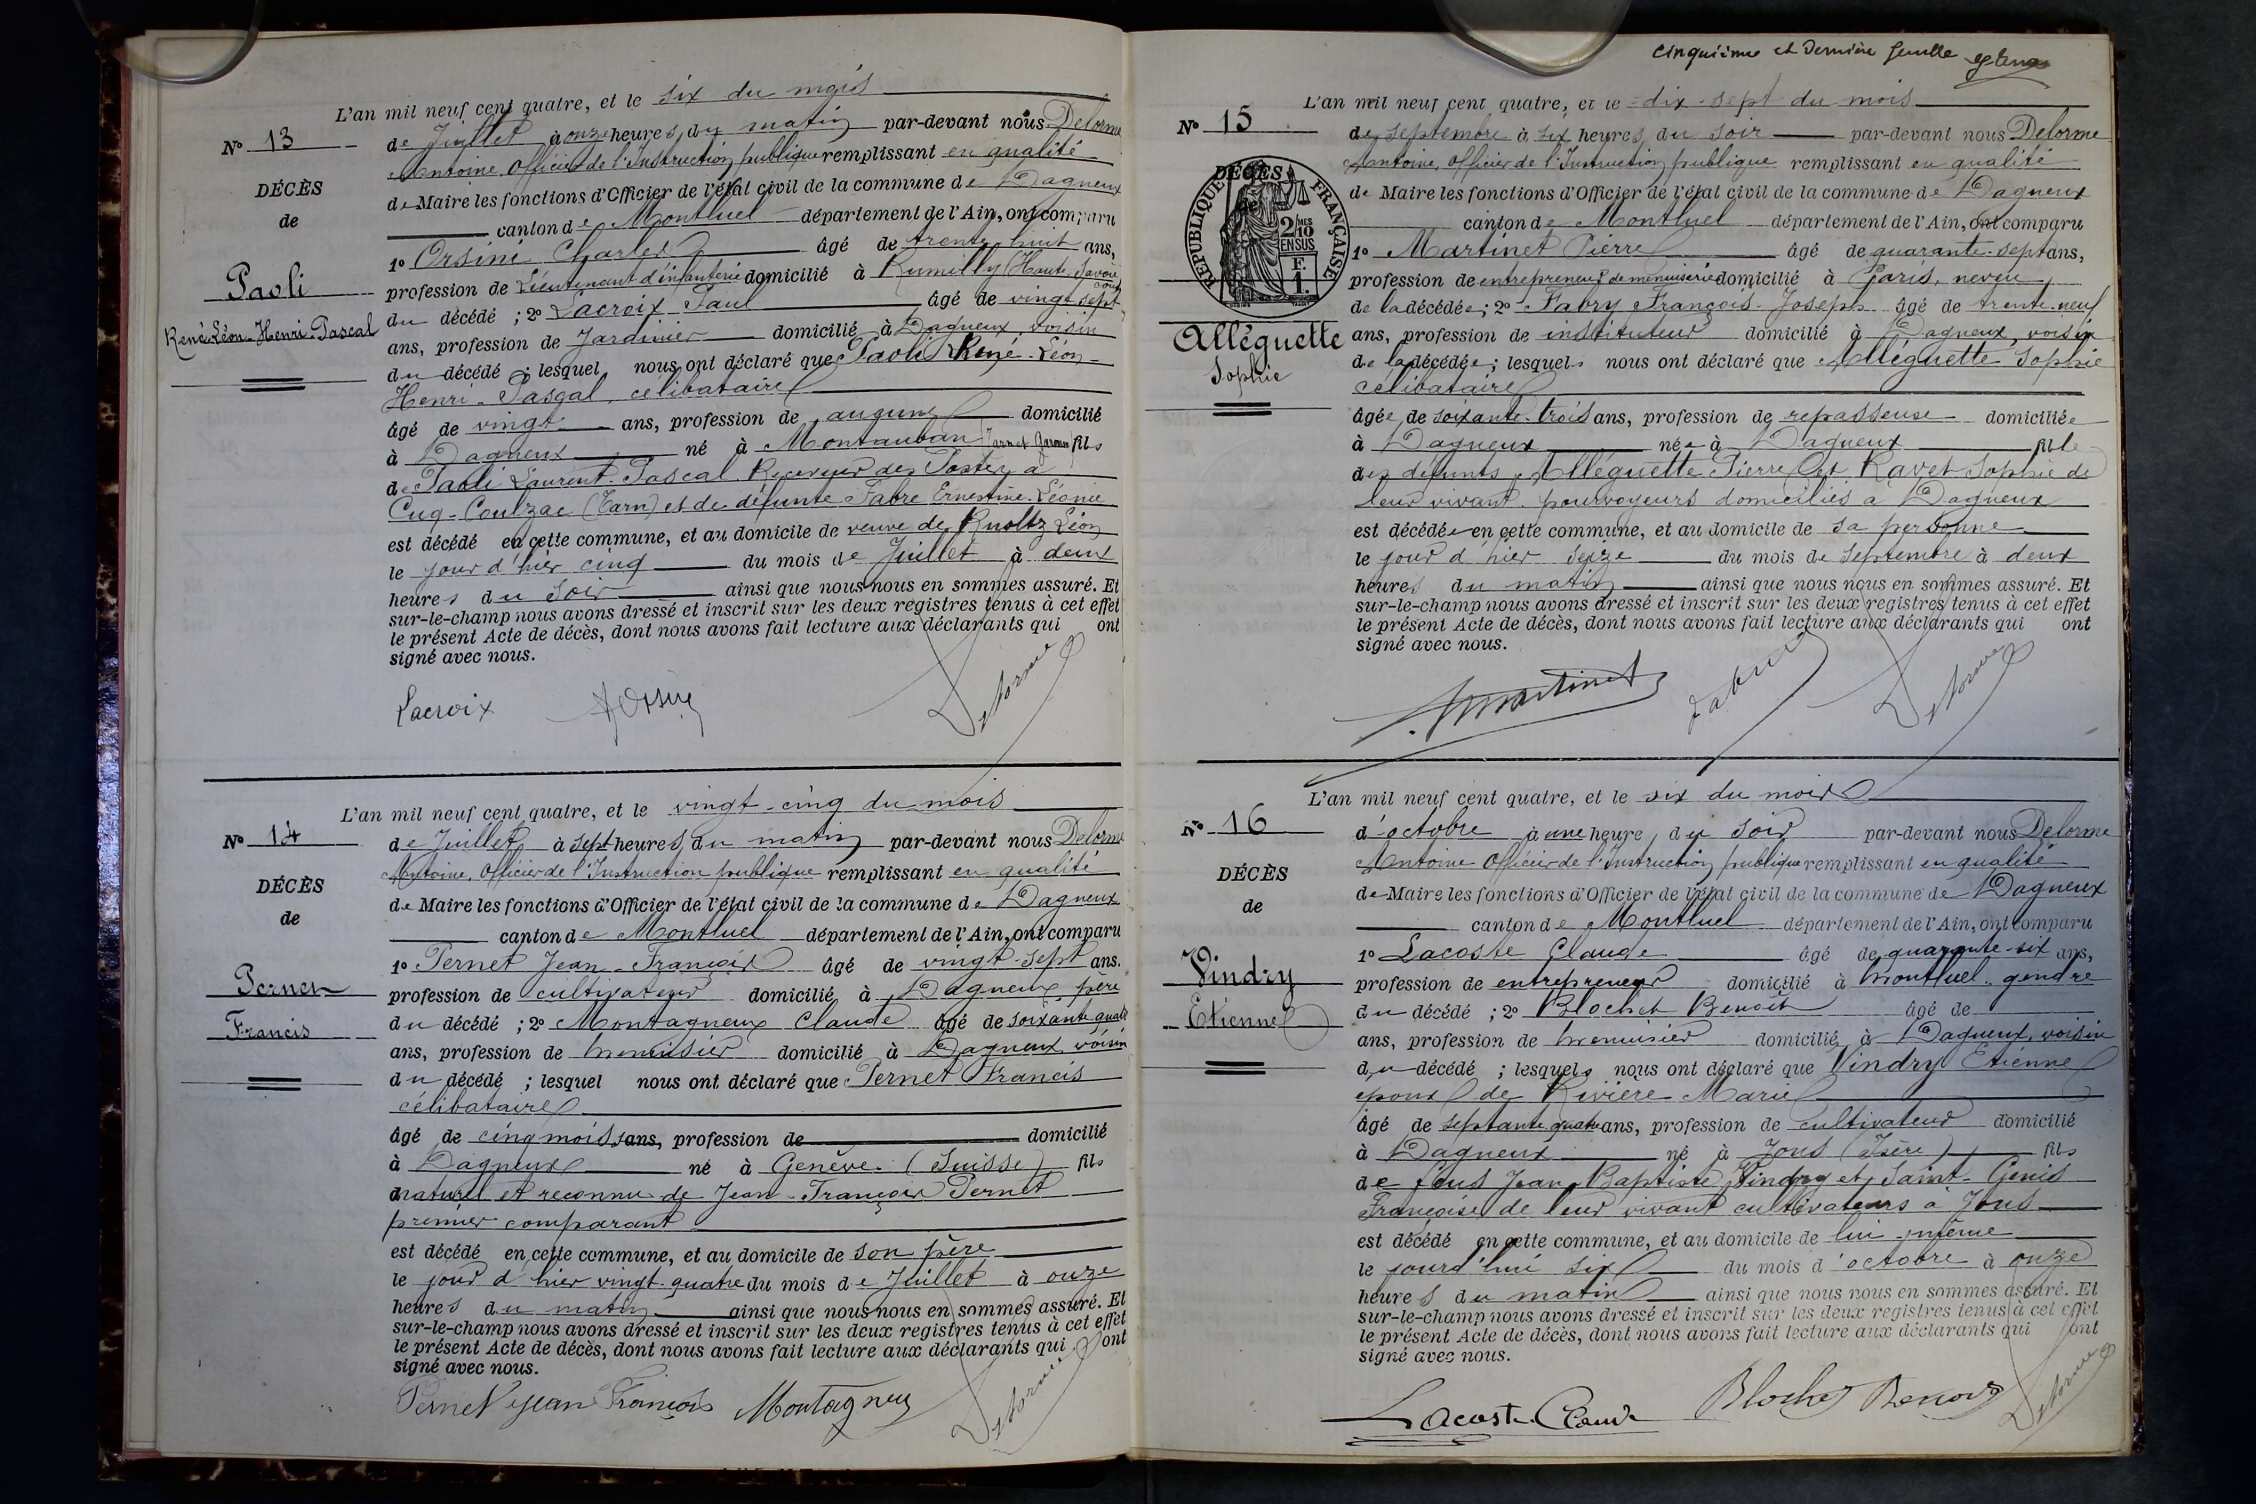 L'an mil neuf cent quatre, et le six du mois
N° 13
de Juillet à onze heures du matin par-devant nous Delorme
Antoine, Officier de l'Instruction publique remplissant en qualité
DÉCÈS
de Maire les fonctions d'Officier de l'état civil de la commune de Dagneux
de
canton de Montluel département de l'Ain, ont comparu
1° Orsini Charles âgé de trente huit ans,
Paoli
profession de Lieutenant d'infanterie domicilié à Rumilly (Haute Savoie)
du décédé ; 2° Lacroix Paul âgé de vingt sept
René-Léon-Henri-Pascal
ans, profession de Jardinier domicilié à Dagneux, voisin
du décédé ; lesquel nous ont déclaré que Paoli René-Léon-
Henri-Pascal, célibataire
âgé de vingt ans, profession de aucune domicilié
à Dagneux né à Montauban Tarn et Garonne fils
de Paoli Laurent-Pascal, Receveur des Postes à
Cuq-Toulzac (Tarn) et de défunte Fabre Ernestine-Léonie
est décédé en cette commune, et au domicile de veuve de Knoltz Léon
le jour d'hier cinq du mois de Juillet à deux
heures du soir ainsi que nous nous en sommes assuré. Et
sur-le-champ nous avons dressé et inscrit sur les deux registres tenus à cet effet
le présent Acte de décès, dont nous avons fait lecture aux déclarants qui ont
signé avec nous.
Lacroix Orsini Delorme
L'an mil neuf cent quatre, et le vingt-cinq du mois
N° 14
de Juillet à sept heures du matin par-devant nous Delorme
Antoine, Officier de l'Instruction publique remplissant en qualité
DÉCÈS
de Maire les fonctions d'Officier de l'état civil de la commune de Dagneux
de
canton de Montluel département de l'Ain, ont comparu
1° Pernet Jean-François âgé de vingt-sept ans.
Pernet
profession de cultivateur domicilié à Dagneux, père
Francis
du décédé ; 2° Montagneux Claude âgé de soixante quatre
ans, profession de menuisier domicilié à Dagneux, voisin
du décédé ; lesquel nous ont déclaré que Pernet Francis
célibataire
âgé de cinq mois, ans, profession de domicilié
à Dagneux né à Genève (Suisse) fils
naturel et reconnu de Jean-François Pernet
premier comparant
est décédé en cette commune, et au domicile de son père
le jour d'hier vingt-quatre du mois de Juillet à onze
heures du matin ainsi que nous nous en sommes assuré. Et
sur-le-champ nous avons dressé et inscrit sur les deux registres tenus à cet effet
le présent Acte de décès, dont nous avons fait lecture aux déclarants qui ont
signé avec nous.
Pernet Jean François Montagneux Delorme
Cinquième et Dernière feuille
L'an mil neuf cent quatre, et le dix-sept du mois
N° 15
de septembre à six heures du soir par-devant nous Delorme
Antoine, Officier de l'Instruction publique remplissant en qualité
DÉCÈS
RÉPUBLIQUE FRANÇAISE
2/10 MES EN SUS
F. 1.
de Maire les fonctions d'Officier de l'état civil de la commune de Dagneux
canton de Montluel département de l'Ain, ont comparu
1° Martinet Pierre âgé de quarante-sept ans,
profession de entrepreneur de menuiserie domicilié à Paris, neveu
de la décédée ; 2° Fabry François-Joseph âgé de trente-neuf
Alléguette
ans, profession de instituteur domicilié à Dagneux, voisin
Sophie
de la décédée ; lesquels nous ont déclaré que Alléguette Sophie
célibataire
âgée de soixante-trois ans, profession de repasseuse domiciliée
à Dagneux née à Dagneux fille
des défunts Alléguette Pierre et Ravet Sophie de
leur vivant pourvoyeurs domiciliés à Dagneux
est décédée en cette commune, et au domicile de sa personne
le jour d'hier seize du mois de septembre à deux
heures du matin ainsi que nous nous en sommes assuré. Et
sur-le-champ nous avons dressé et inscrit sur les deux registres tenus à cet effet
le présent Acte de décès, dont nous avons fait lecture aux déclarants qui ont
signé avec nous.
Martinet Fabry Delorme
L'an mil neuf cent quatre, et le six du mois
N° 16
d'octobre à une heure, du soir par-devant nous Delorme
Antoine Officier de l'Instruction publique remplissant en qualité
DÉCÈS
de Maire les fonctions d'Officier de l'état civil de la commune de Dagneux
de
canton de Montluel département de l'Ain, ont comparu
1° Lacoste Claude âgé de quarante-six ans,
Vindry
profession de entrepreneur domicilié à Montluel, gendre
Etienne
du décédé ; 2° Blochet Benoît âgé de
ans, profession de menuisier domicilié à Dagneux, voisin
du décédé ; lesquels nous ont déclaré que Vindry Etienne
époux de Rivière Marie
âgé de septante quatre ans, profession de cultivateur domicilié
à Dagneux né à Jons (Isère) fils
de feus Jean-Baptiste Vindry et Saint-Genis
Françoise de leur vivant cultivateurs à Jons
est décédé en cette commune, et au domicile de lui-même
le jourd'hui six du mois d'octobre à onze
heures du matin ainsi que nous nous en sommes assuré. Et
sur-le-champ nous avons dressé et inscrit sur les deux registres tenus à cet effet
le présent Acte de décès, dont nous avons fait lecture aux déclarants qui ont
signé avec nous.
Lacoste Claude Blochet Benoit Delorme